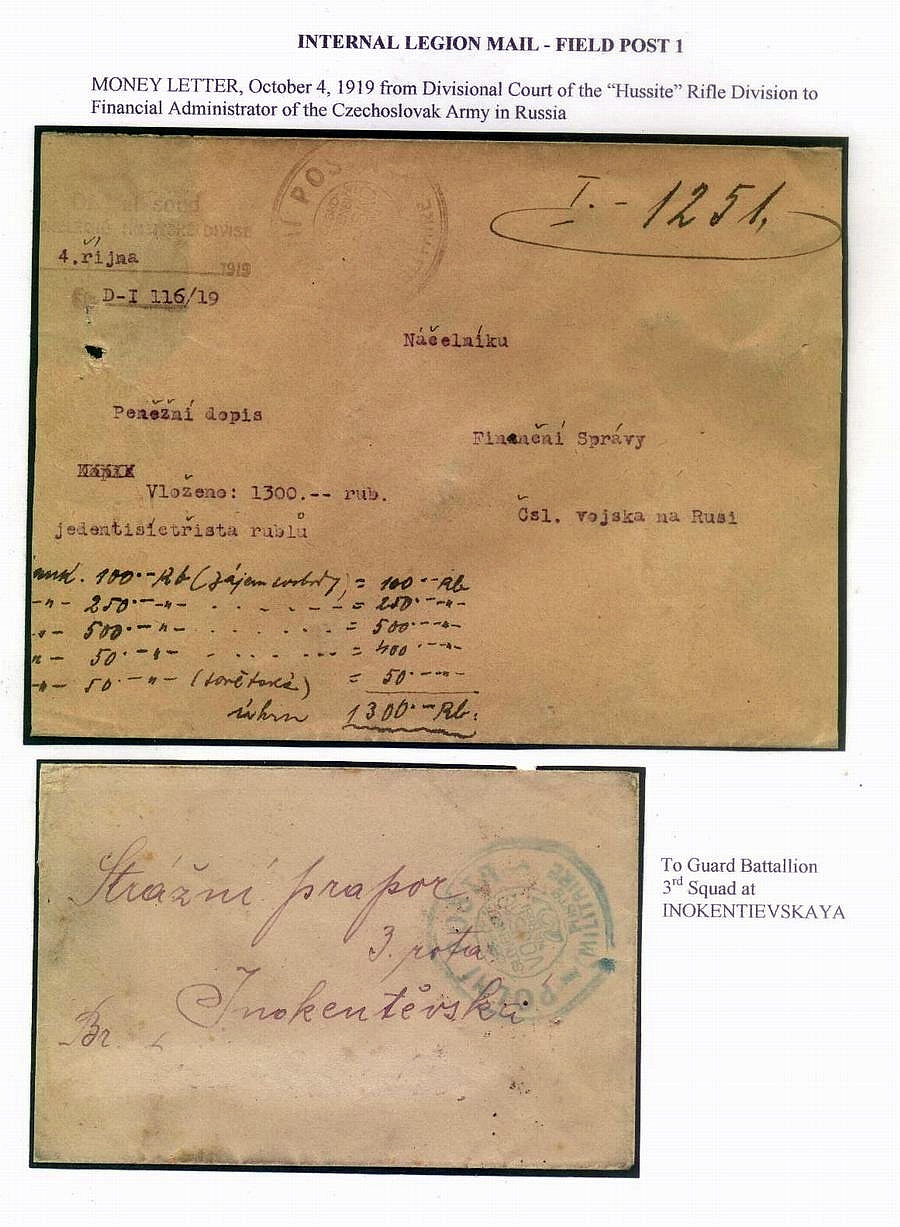 INTERNAL LEGION MAIL - FIELD POST 1
MONEY LETTER, October 4, 1919 from Divisional Court of the “Hussite” Rifle Division to
Financial Administrator of the Czechoslovak Army in Russia
soud
DIVISE
I. - 1251,
4. října
1919
D-I 116/19
Náčelníku
Peněžní dopis
Finanční Správy
Vloženo: 1300.-- rub.
Čsl. vojska na Rusi
jedentisictřista rublů
100.- Rb (zájem svobody) = 100.- Rb
-"- 250.- -"- = 250.- -"-
500.- -"- = 500.- -"-
50.- -"- = 400.- -"-
-"- 50.- -"- (sovětské) = 50.- -"-
úhrn 1300.- Rb.
Strážní prapor
3. rota
Inokentěvská
Br.
POLNÍ
MILITAIRE
To Guard Battallion
3rd Squad at
INOKENTIEVSKAYA